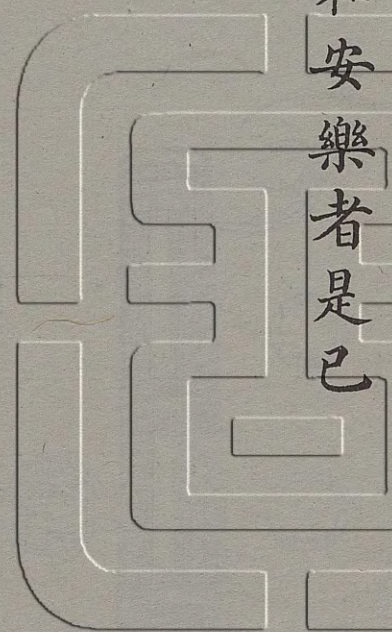 安樂者是已